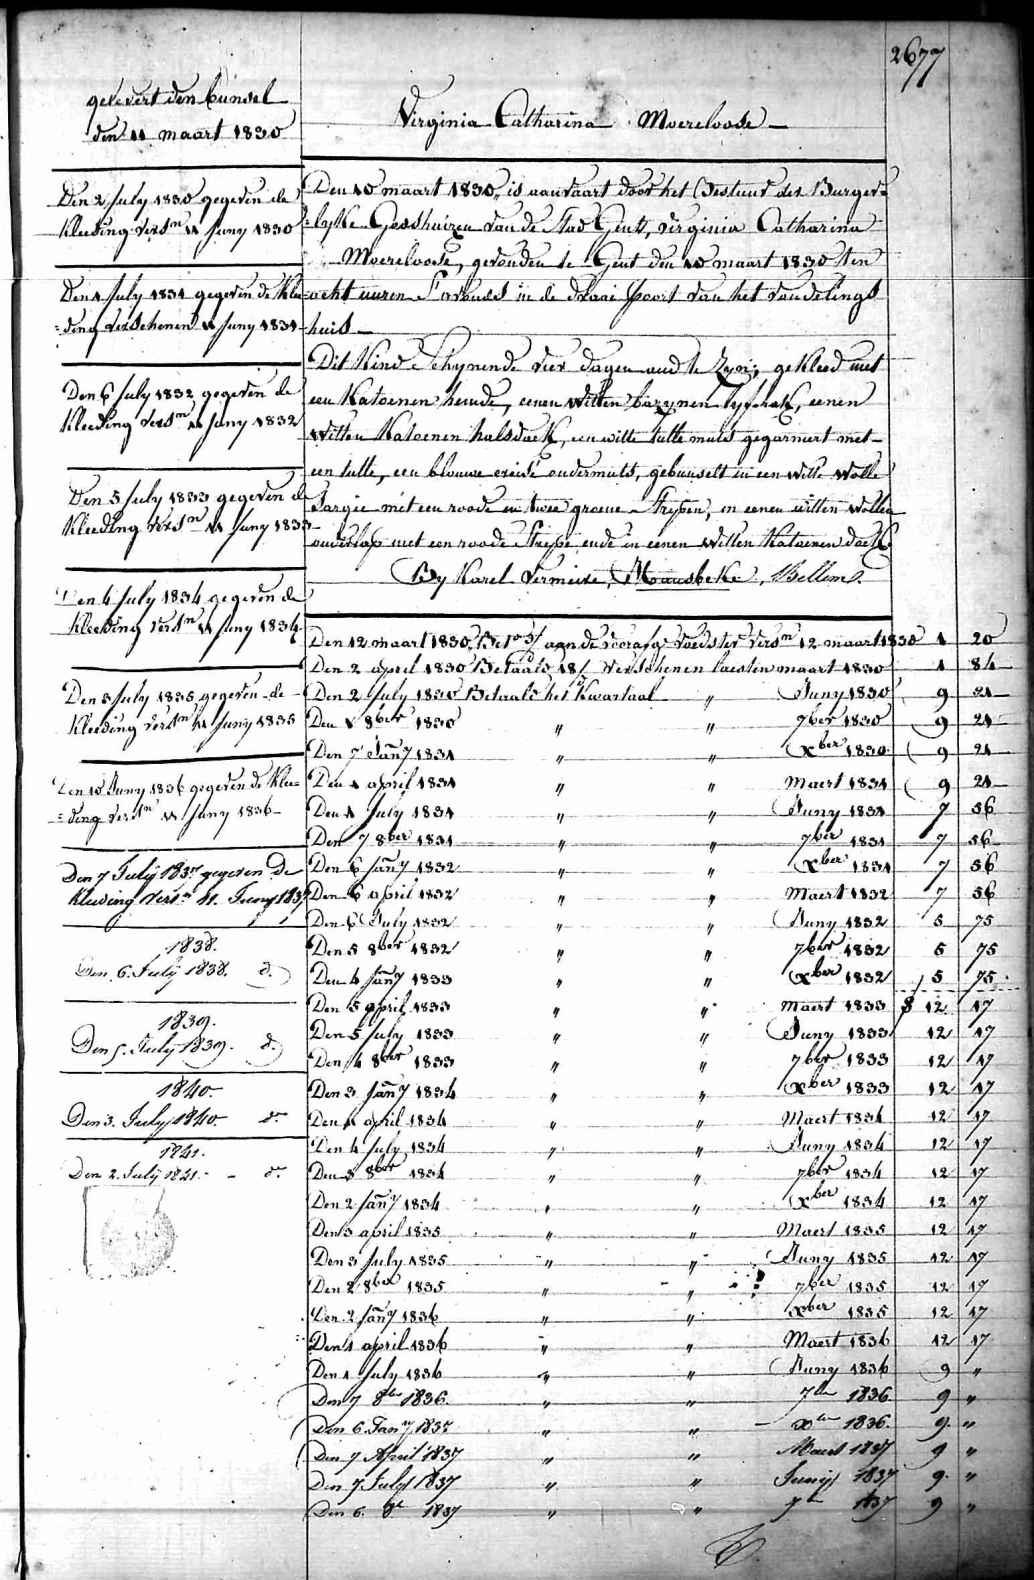 2677
gelevert den bunsel
den 11 maart 1830
Virginia Catharina Moereloose
Den 2 july 1830 gegeven de
kleeding versn 11 juny 1830
Den 1 july 1831 gegeven de klee=
=ding verschenen 11 juny 1831
Den 6 july 1832 gegeven de
kleeding versn 11 juny 1832
Den 5 july 1833 gegeven de
kleeding versn 11 juny 1833
Den 4 july 1834 gegeven de
kleeding versn 11 juny 1834
Den 3 july 1835 gegeven de
kleeding versn 11 juny 1835
Den 10 Juny 1836 gegeven de klee=
=ding versn 11 juny 1836
Den 7 July 1837 gegeven De
kleeding versn 11. Juny 1837
1838.
Den 6. July 1838. d.
1839.
Den 5. July 1839. d.
1840.
Den 3. July 1840. do
1841.
Den 2. July 1841. - do
Den 10 maart 1830, is aanvaart door het Bestuur der Burger=
=lyke Godshuizen van de Stad Gent, virginia Catharina
Moereloose, gevonden te Gent den 10 maart 1830 ten
acht uuren s'avonds in de draai poort van het vandelings
huis
Dit Kind schynende vier dagen oud te zyn, gekleed met
een Katoenen hemde, eenen witten bazynen lyfvrak, eenen
witten Katoenen halsdoek, een witte tulle muts gegarniert met
een tulle, een blouwe ondermuts, gebunselt in een witte wolle
Sargie met een roode en twee groene strypen, in eenen witten wollen
onderlap met een roode strype ende in eenen witten Katoenen doek.
By Karel Vermeire, Bellem.
Den 12 maart 1830 aan de voedster versn 12 maart 1830 1 20
Den 2 april 1830 Betaald 18/ verschenen laesten maart 1830 1 84
Den 2 July 1830 Betaald het Kwartaal " Juny 1830 9 21
Den 1 8ber 1830 " " 7ber 1830 9 21
Den 7 Jany 1831 " " xber 1830 9 21
Den 1 april 1831 " " Maert 1831 9 21
Den 1 July 1831 " " Juny 1831 7 56
Den 7 8ber 1831 " " 7ber 1831 7 56
Den 6 Jany 1832 " " xber 1831 7 56
Den 6 april 1832 " " Maert 1832 7 56
Den 6 July 1832 " " Juny 1832 5 75
Den 5 8ber 1832 " " 7ber 1832 5 75
Den 4 Jany 1833 " " xber 1832 5 75
Den 5 april 1833 " " Maert 1833 12 17
Den 5 july 1833 " " Juny 1833 12 17
Den 4 8ber 1833 " " 7ber 1833 12 17
Den 3 Jany 1834 " " xber 1833 12 17
Den 4 april 1834 " " Maert 1834 12 17
Den 4 july 1834 " " Juny 1834 12 17
Den 3 8ber 1834 " " 7ber 1834 12 17
Den 2 Jany 1834 " " xber 1834 12 17
Den 3 april 1835 " " Maert 1835 12 17
Den 3 july 1835 " " Juny 1835 12 17
Den 2 8ber 1835 " " 7ber 1835 12 17
Den 2 Jany 1836 " " xber 1835 12 17
Den 1 april 1836 " " Maert 1836 12 17
Den 1 july 1836 " " Juny 1836 9 "
Den 7 8ber 1836. " " 7ber 1836 9 "
Den 6 Jany 1837 " " xber 1836. 9. "
Den 7 April 1837 " " Maert 1837 9 "
Den 7 July 1837 " " Juny 1837 9. "
Den 6. 8r 1837 " " 7r 1837 9 "